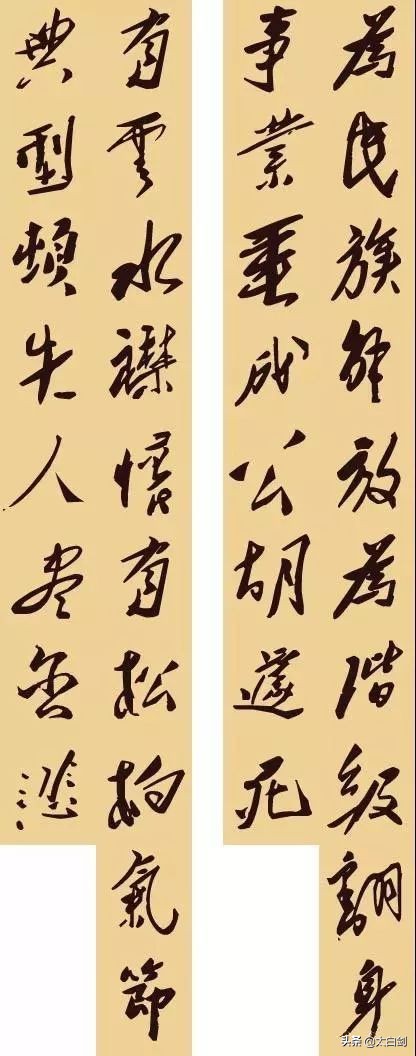 為民族解放為階級翻身
事業垂成公胡遽死
有雲水襟懷有松柏氣節
典型頓失人盡含悲
头条 @太白剑